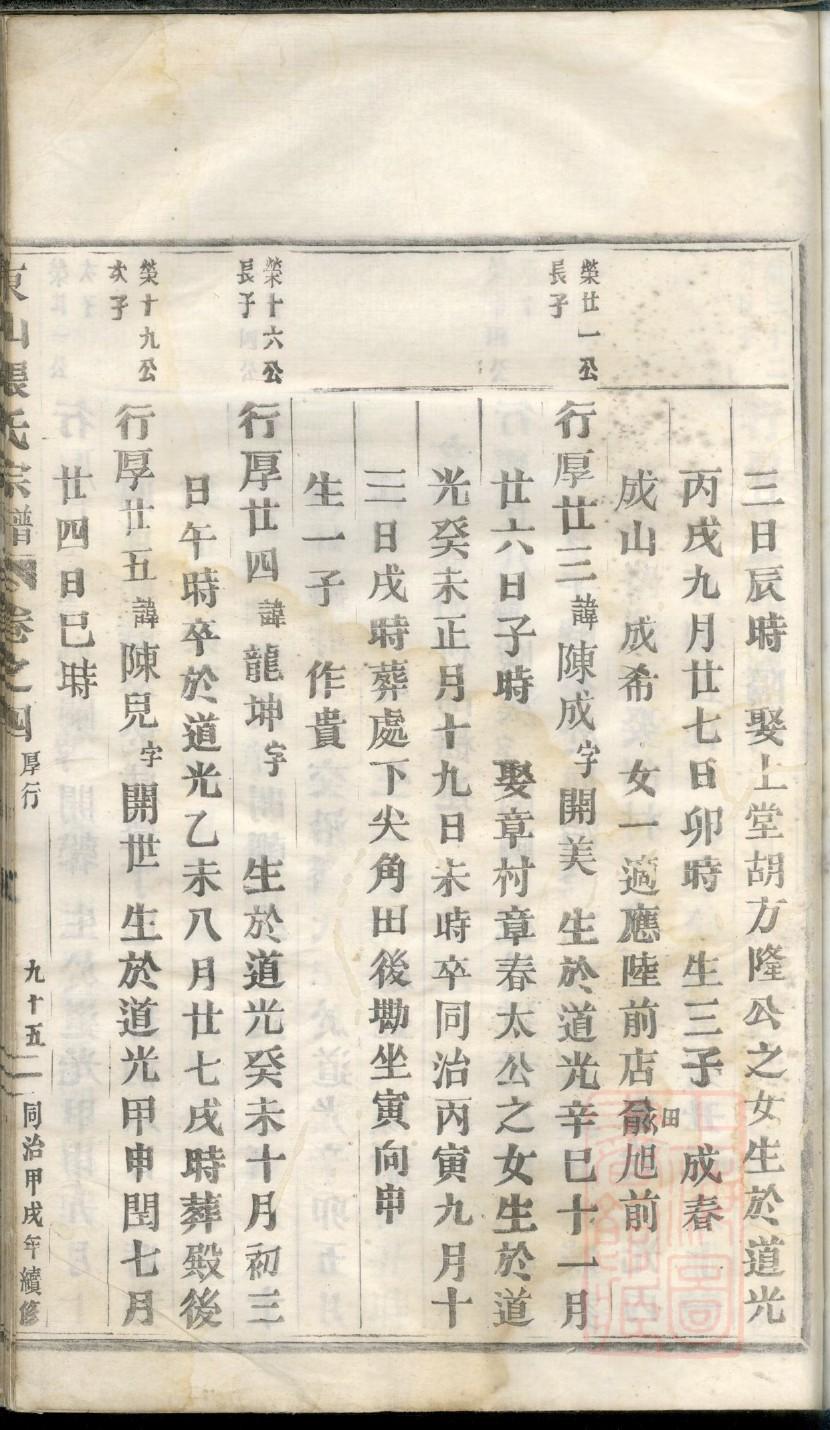 三日辰時　娶上堂胡方隆公之女生於道光
丙戌九月廿七日卯時　生三子　成春
成山　成希　女一適應陸前店俞旭前
田
榮廿一公
長子
行厚廿三諱陳成字開美　生於道光辛巳十一月
廿六日子時　娶章村章春太公之女生於道
光癸未正月十九日未時卒同治丙寅九月十
三日戌時葬處下尖角田後墈坐寅向申
生一子　作貴
榮十六公
長子
行厚廿四諱龍坤字　生於道光癸未十月初三
日午時卒於道光乙未八月廿七戌時葬殿後
榮十九公
次子
行厚廿五諱陳兒字開世　生於道光甲申閏七月
廿四日巳時
東山張氏宗譜　卷之四　厚行　九十五　同治甲戌年續修